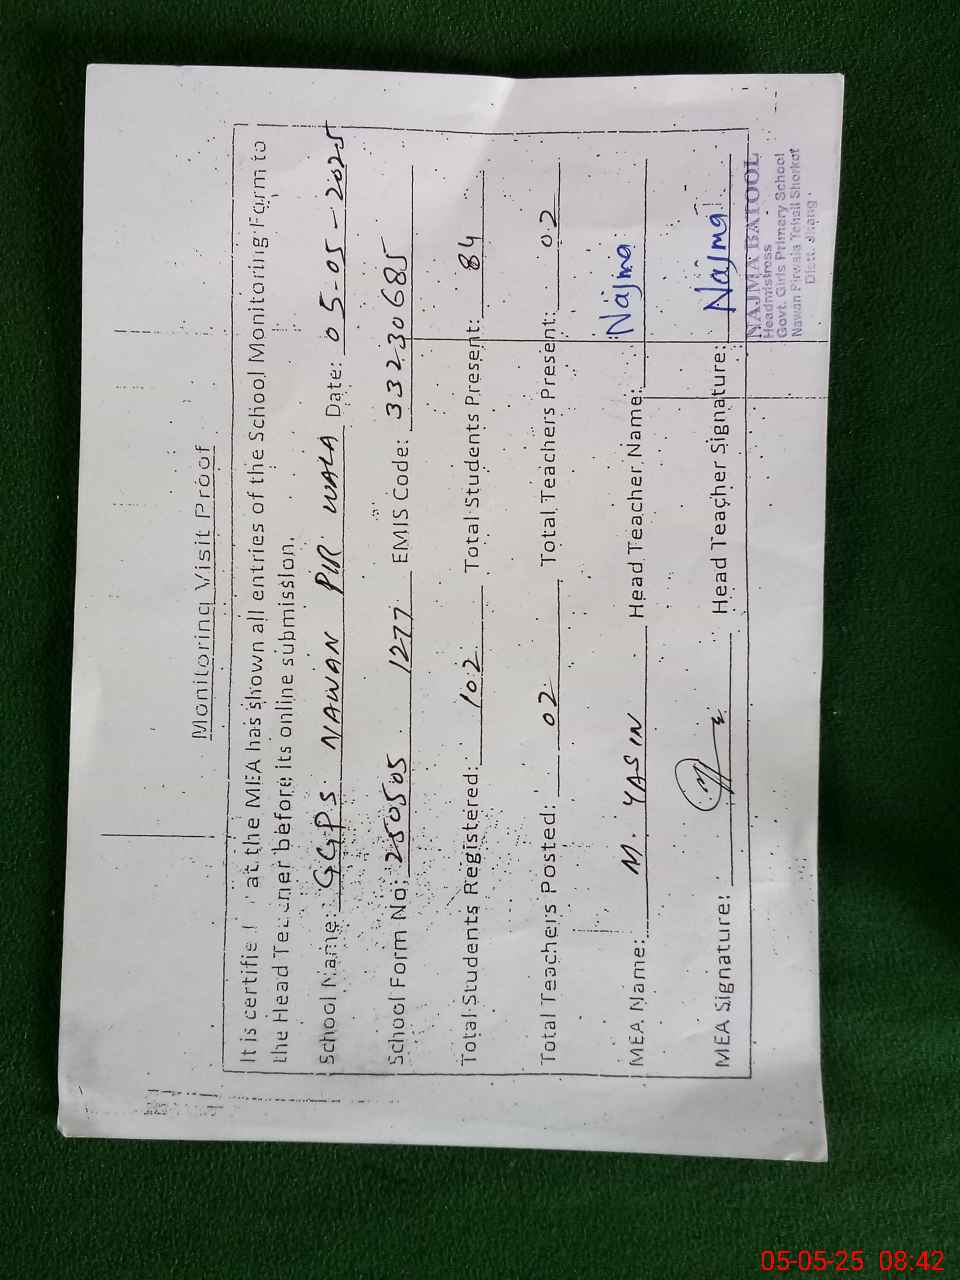 Monitoring Visit Proof
It is certified at the MEA has shown all entries of the School Monitoring Form to
the Head Teacher before its online submission.
School Name: GGPS NAWAN PIR WALA Date: 05-05-2025
School Form No: 250505 1277 EMIS Code: 33230685
Total Students Registered: 102 Total Students Present: 84
Total Teachers Posted: 02 Total Teachers Present: 02
MEA Name: M. YASIN Head Teacher Name: Najma
MEA Signature: Head Teacher Signature: Najma
NAJMA BATOOL
Headmistress
Govt. Girls Primary School
Nawan Pirwala Tehsil Shorkot
Distt. Jhang
05-05-25 08:42